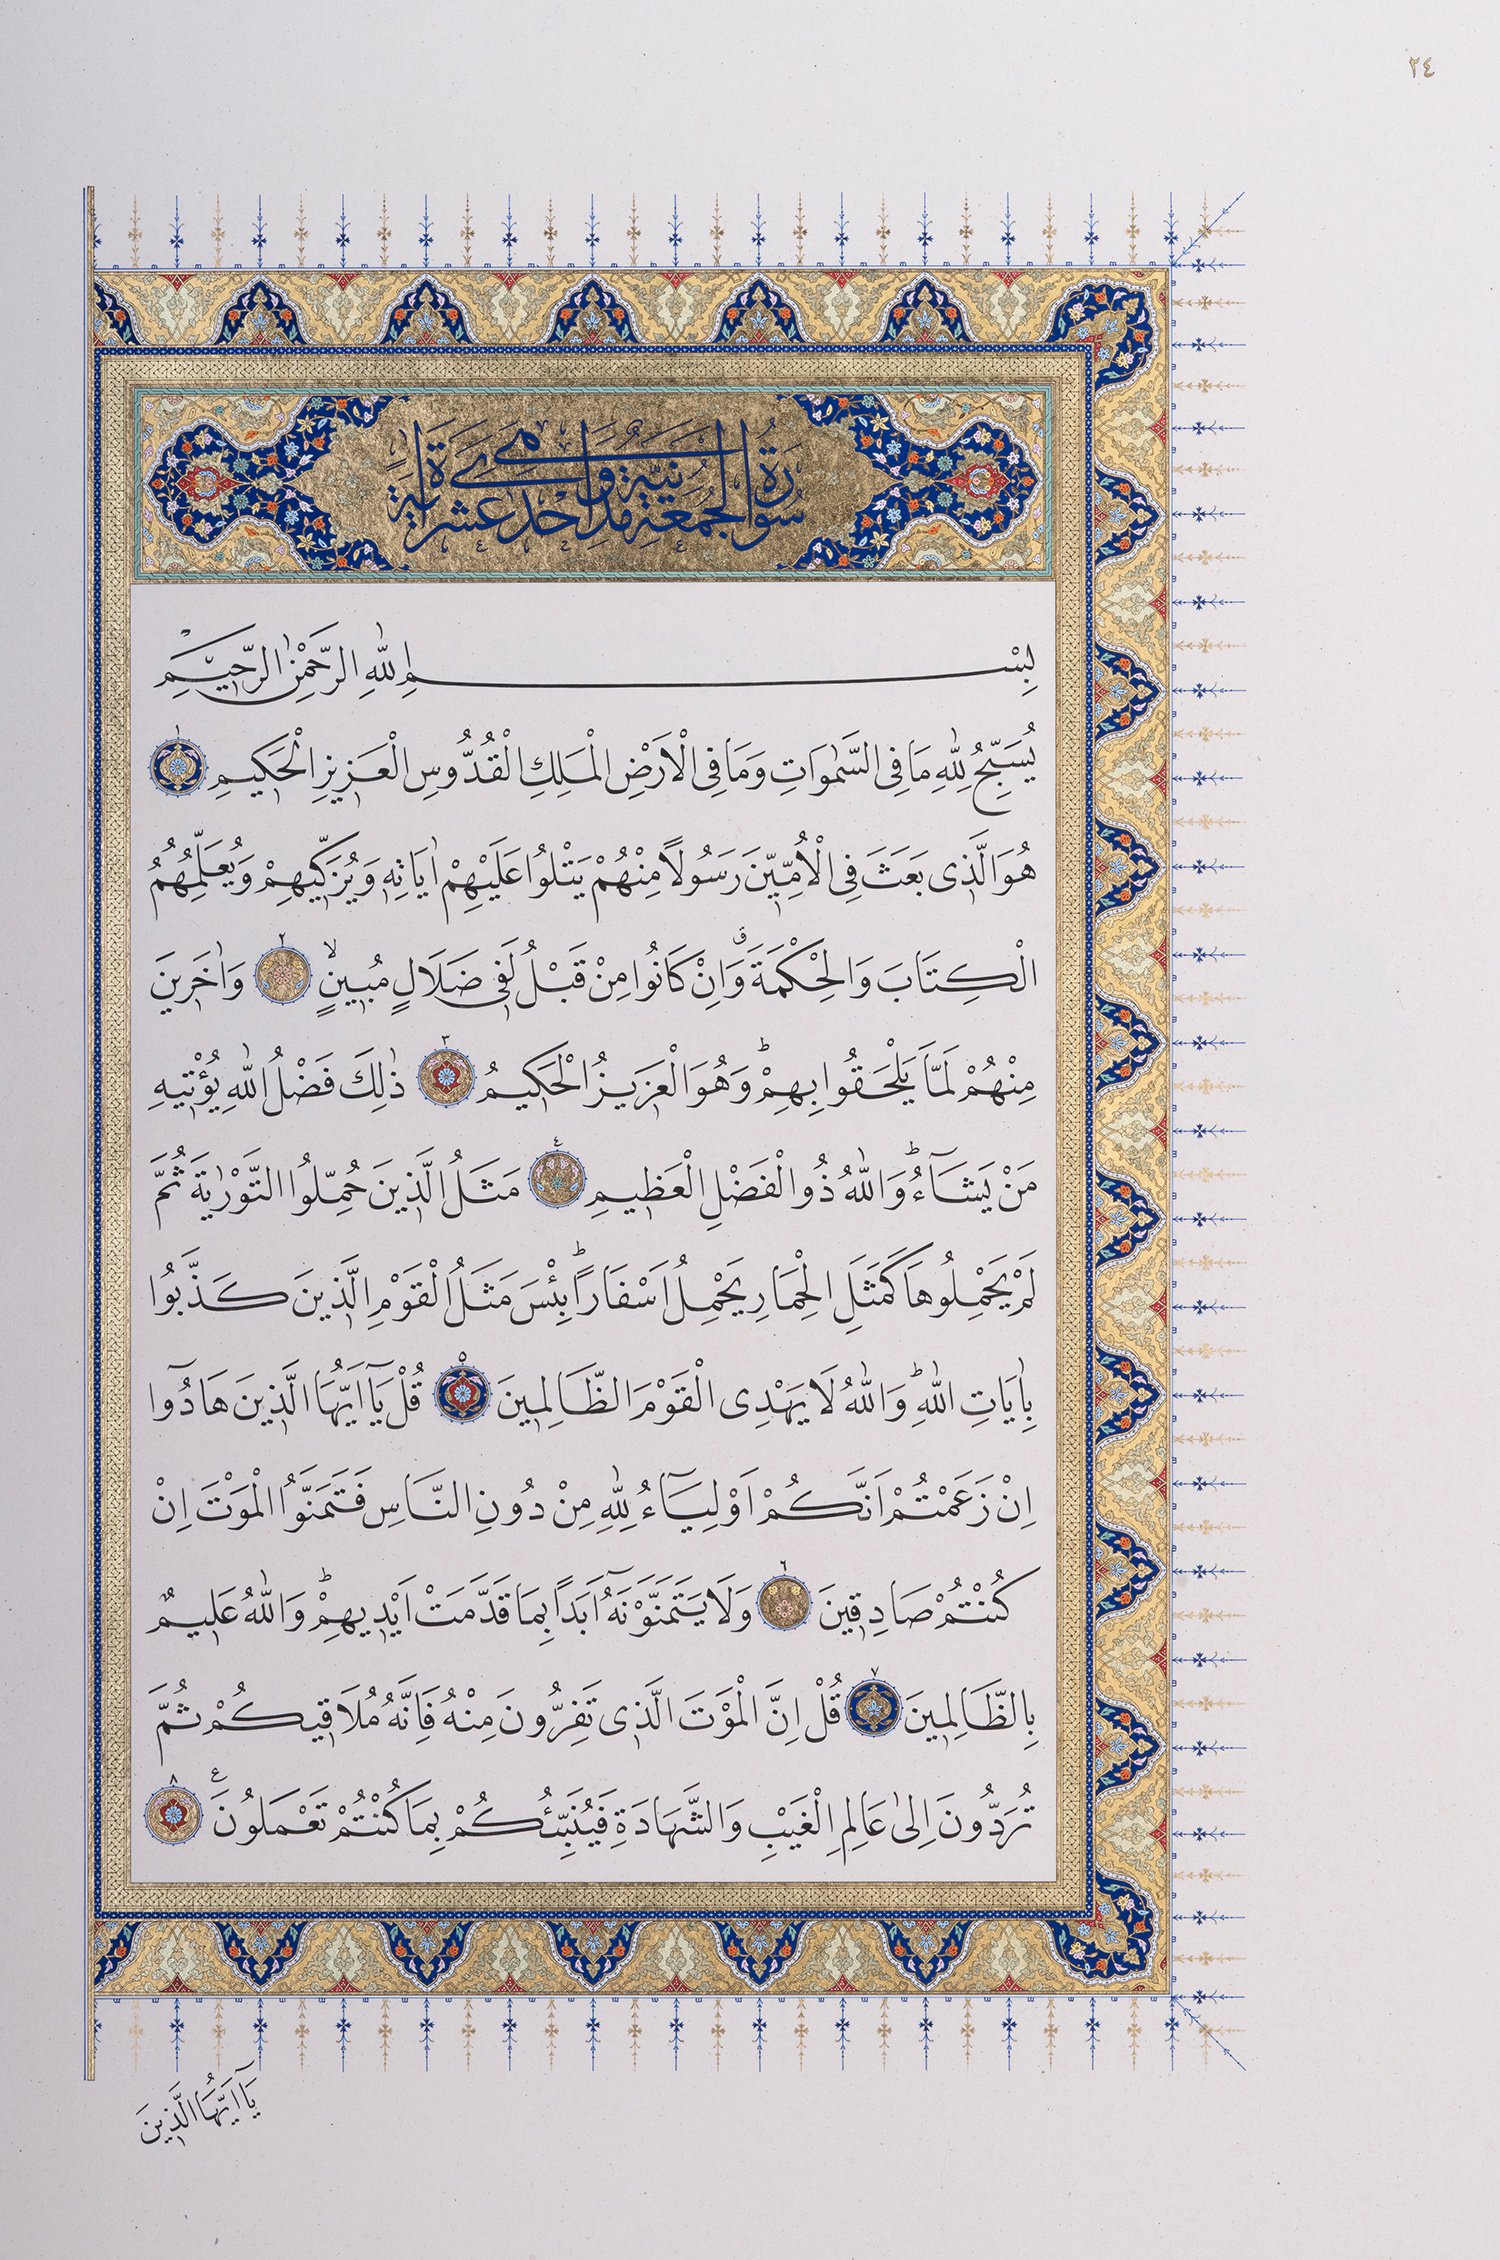 ٢٤
سُورَةُ الْجُمُعَةِ مَدَنِيَّةٌ وَهِيَ اِحْدٰى عَشْرَةَ اٰيَةً
بِسْمِ اللّٰهِ الرَّحْمٰنِ الرَّحِيمِ
يُسَبِّحُ لِلّٰهِ مَا فِى السَّمٰوَاتِ وَمَا فِى الْاَرْضِ الْمَلِكِ الْقُدُّوسِ الْعَزِيزِ الْحَكِيمِ ١
هُوَ الَّذِى بَعَثَ فِى الْاُمِّيّنَ رَسُولًا مِنْهُمْ يَتْلُوا عَلَيْهِمْ اٰيَاتِهِ وَيُزَكِّيهِمْ وَيُعَلِّمُهُمُ
الْكِتَابَ وَالْحِكْمَةَ ۗ وَاِنْ كَانُوا مِنْ قَبْلُ لَفِى ضَلَالٍ مُبِينٍ ۙ ٢ وَاٰخَرِينَ
مِنْهُمْ لَمَّا يَلْحَقُوا بِهِمْ ۜ وَهُوَ الْعَزِيزُ الْحَكِيمُ ٣ ذٰلِكَ فَضْلُ اللّٰهِ يُؤْتِيهِ
مَنْ يَشَٓاءُ ۜ وَاللّٰهُ ذُوالْفَضْلِ الْعَظِيمِ ٤ مَثَلُ الَّذِينَ حُمِّلُوا التَّوْرٰيةَ ثُمَّ
لَمْ يَحْمِلُوهَا كَمَثَلِ الْحِمَارِ يَحْمِلُ اَسْفَاراً ۜ بِئْسَ مَثَلُ الْقَوْمِ الَّذِينَ كَذَّبُوا
بِاٰيَاتِ اللّٰهِ ۜ وَاللّٰهُ لَا يَهْدِى الْقَوْمَ الظَّالِمِينَ ٥ قُلْ يَٓا اَيُّهَا الَّذِينَ هَادُٓوا
اِنْ زَعَمْتُمْ اَنَّكُمْ اَوْلِيَٓاءُ لِلّٰهِ مِنْ دُونِ النَّاسِ فَتَمَنَّوُا الْمَوْتَ اِنْ
كُنْتُمْ صَادِقِينَ ٦ وَلَا يَتَمَنَّوْنَهُٓ اَبَداً بِمَا قَدَّمَتْ اَيْدِيهِمْ ۜ وَاللّٰهُ عَلِيمٌ
بِالظَّالِمِينَ ٧ قُلْ اِنَّ الْمَوْتَ الَّذِى تَفِرُّونَ مِنْهُ فَاِنَّهُ مُلَاقِيكُمْ ثُمَّ
تُرَدُّونَ اِلٰى عَالِمِ الْغَيْبِ وَالشَّهَادَةِ فَيُنَبِّئُكُمْ بِمَا كُنْتُمْ تَعْمَلُونَ ع ٨
يَٓا اَيُّهَا الَّذِينَ